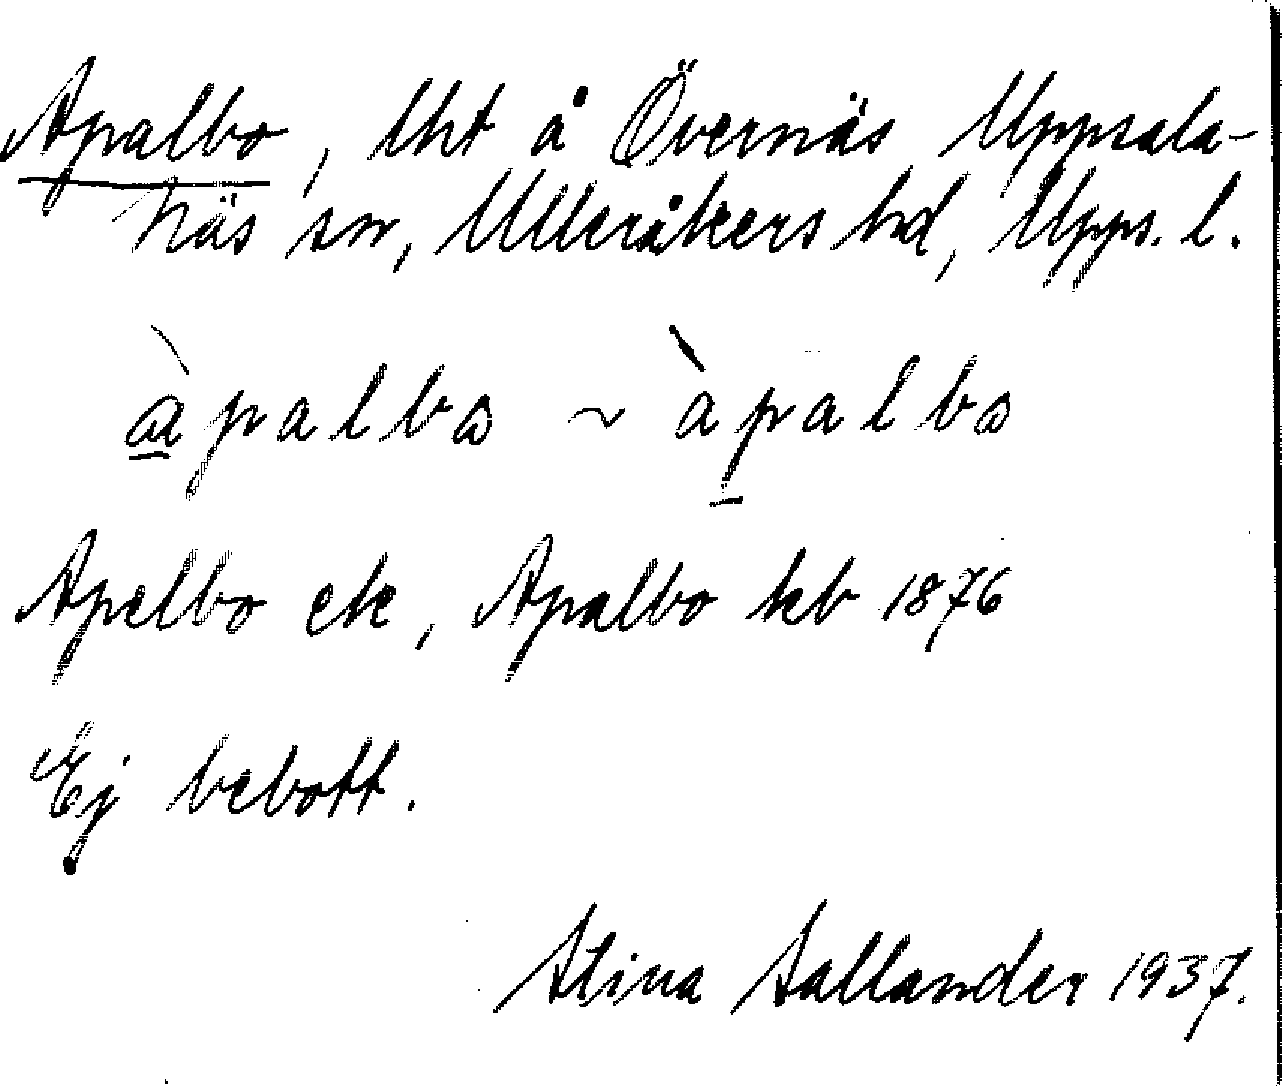 Apalbo, lht å Övernäs Uppsala-
näs sn, Ulleråkers hd, Upps. l.
àpalbω ~ àpalbω
Apelbo ek, Apalbo kb 1876
Ej bebott.
Stina Sallander 1937.